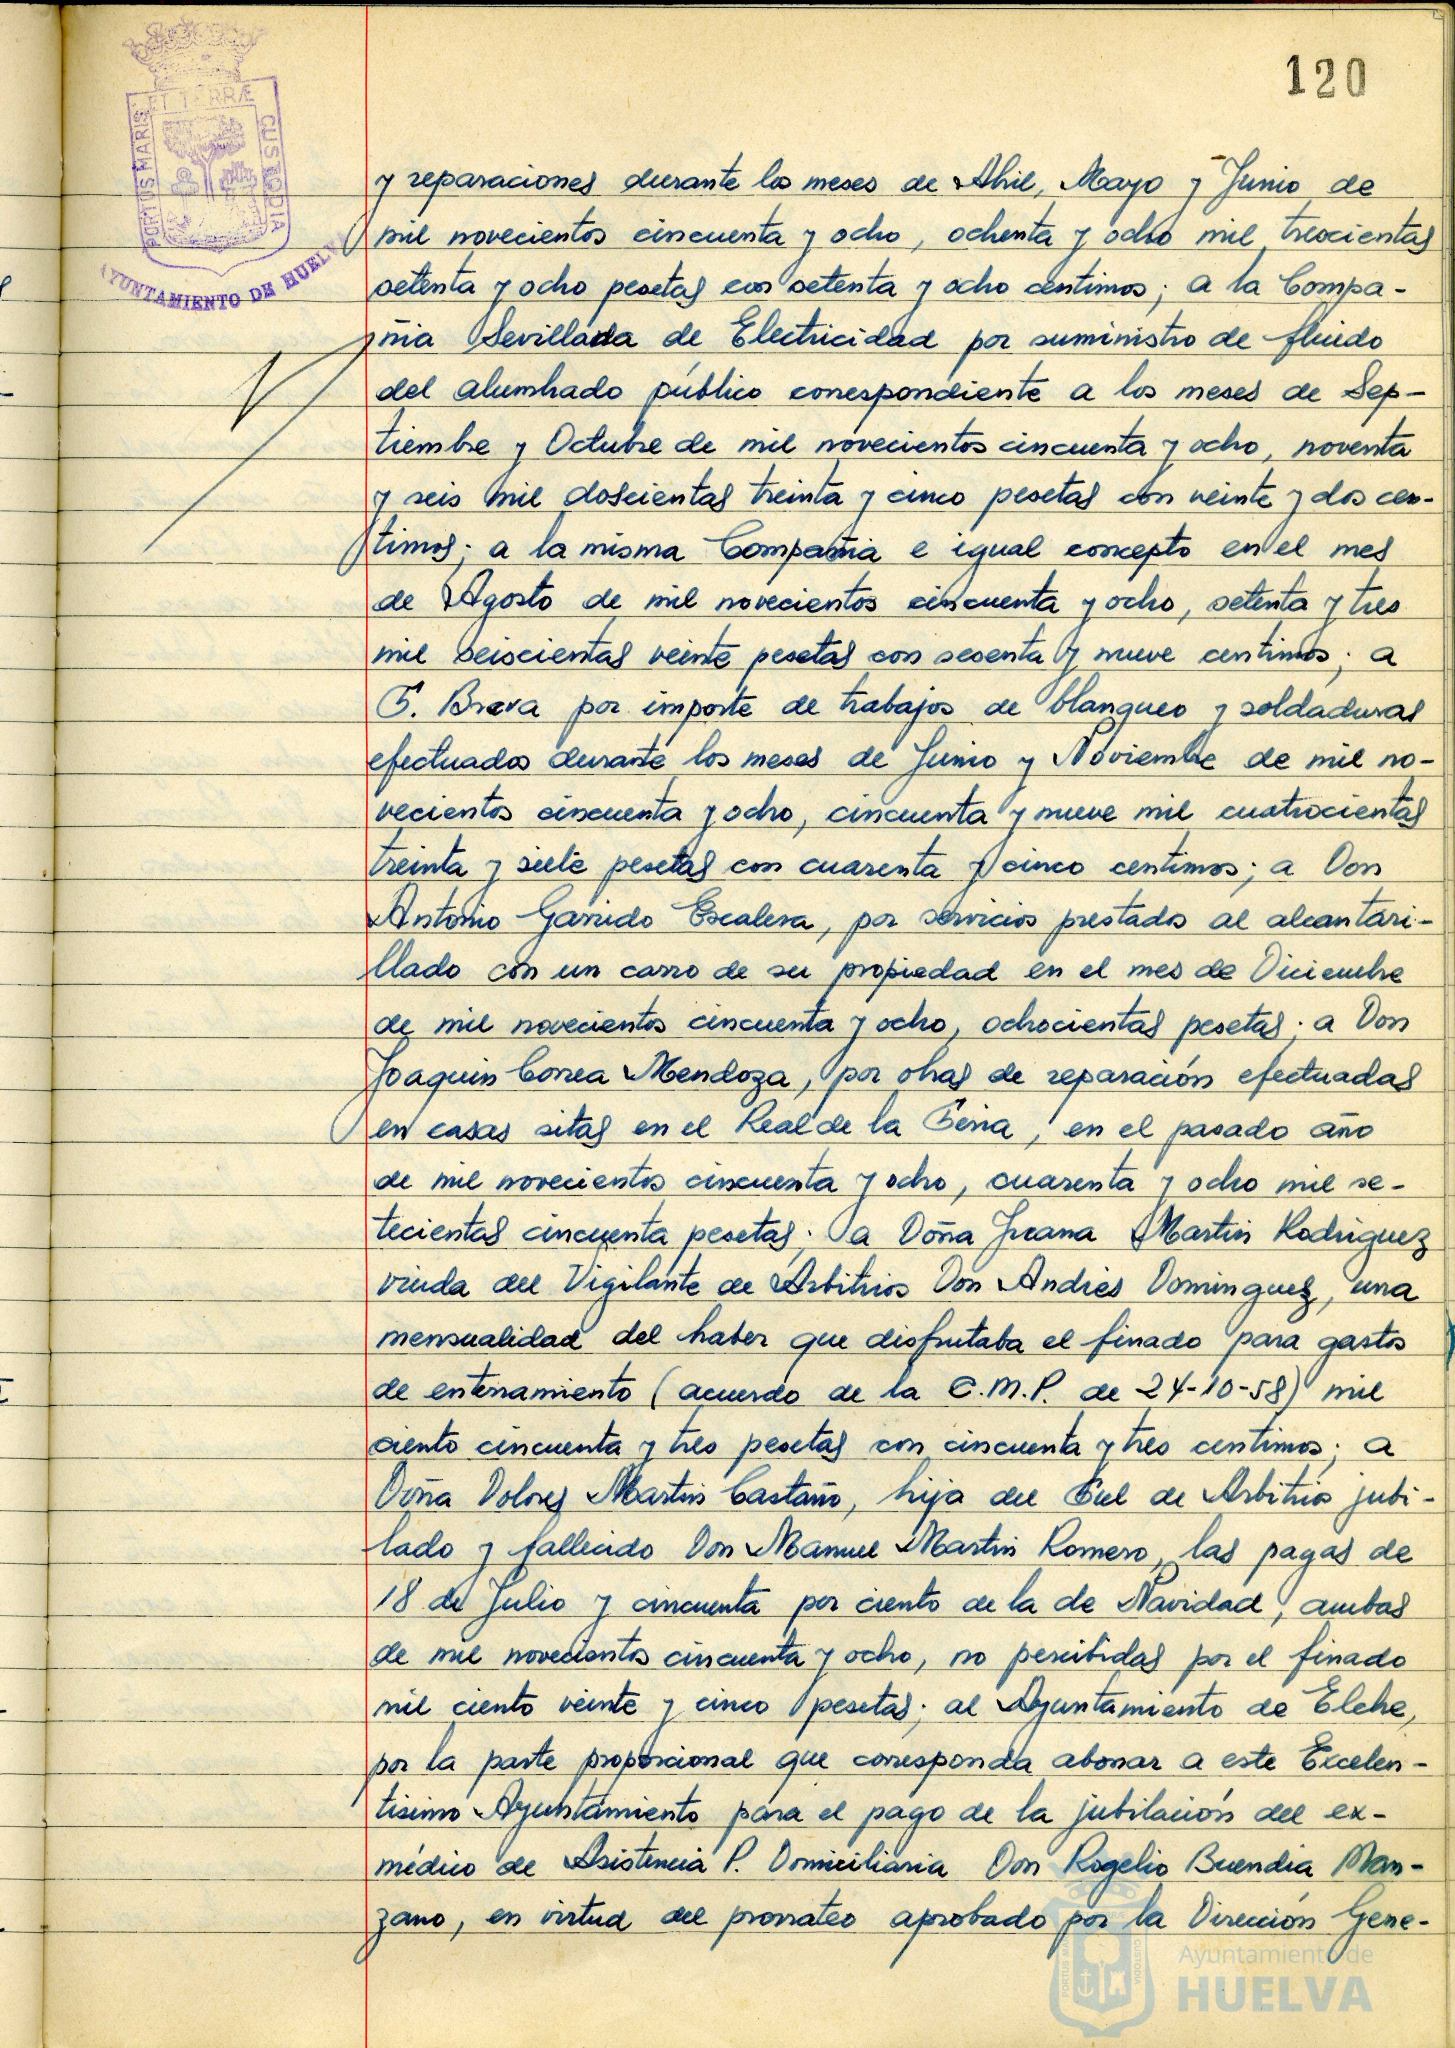 120
PORTUS MARIS ET TERRÆ CUSTODIA
AYUNTAMIENTO DE HUELVA
y reparaciones durante los meses de Abril, Mayo y Junio de
mil novecientos cincuenta y ocho, ochenta y ocho mil, trescientas
setenta y ocho pesetas con setenta y ocho centimos; a la Compa-
ñia Sevillana de Electricidad por suministro de fluido
del alumbrado público correspondiente a los meses de Sep-
tiembre y Octubre de mil novecientos cincuenta y ocho, noventa
y seis mil doscientas treinta y cinco pesetas con veinte y dos cen-
timos; a la misma Compañia e igual concepto en el mes
de Agosto de mil novecientos cincuenta y ocho, setenta y tres
mil seiscientas veinte pesetas con sesenta y nueve centimos; a
F. Brava por importe de trabajos de blanqueo y soldaduras
efectuados durante los meses de Junio y Noviembre de mil no-
vecientos cincuenta y ocho, cincuenta y nueve mil cuatrocientas
treinta y siete pesetas con cuarenta y cinco centimos; a Don
Antonio Garrido Escalera, por servicios prestados al alcantari-
llado con un carro de su propiedad en el mes de Diciembre
de mil novecientos cincuenta y ocho, ochocientas pesetas; a Don
Joaquin Correa Mendoza, por obras de reparación efectuadas
en casas sitas en el Real de la Feria, en el pasado año
de mil novecientos cincuenta y ocho, cuarenta y ocho mil se-
tecientas cincuenta pesetas; a Doña Juana Martin Rodriguez
viuda del Vigilante de Arbitrios Don Andrés Dominguez, una
mensualidad del haber que disfrutaba el finado para gastos
de enterramiento (acuerdo de la C.M.P. de 24-10-58) mil
ciento cincuenta y tres pesetas con cincuenta y tres centimos; a
Doña Dolores Martin Castaño, hija del Fiel de Arbitrios jubi-
lado y fallecido Don Manuel Martin Romero, las pagas de
18 de Julio y cincuenta por ciento de la de Navidad, ambas
de mil novecientos cincuenta y ocho, no percibidas por el finado
mil ciento veinte y cinco pesetas; al Ayuntamiento de Elche,
por la parte proporcional que corresponda abonar a este Excelen-
tisimo Ayuntamiento para el pago de la jubilación del ex-
médico de Asistencia P. Domiciliaria Don Rogelio Buendia Man-
zano, en virtud del prorrateo aprobado por la Dirección Gene-
Ayuntamiento de
HUELVA